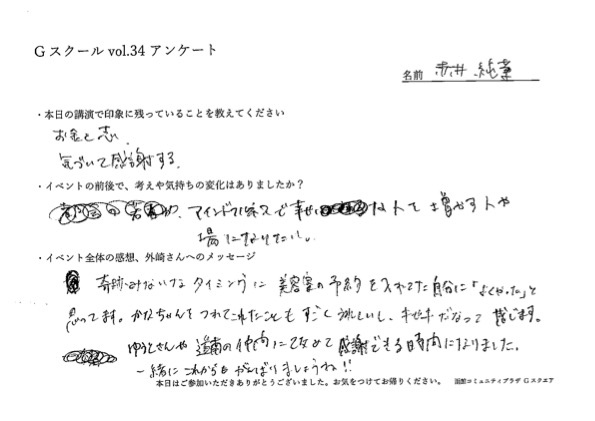 Gスクール vol.34 アンケート
名前 赤井 純葉
・本日の講演で印象に残っていることを教えてください
お金と志
気づいて感謝する
・イベントの前後で、考えや気持ちの変化はありましたか?
マインドフルネスで幸せな人を増やす人や
場になりたい。
・イベント全体の感想、外崎さんへのメッセージ
奇跡みたいなタイミングに美容室の予約を入れてた自分に「よくやった」と
思ってます。かなちゃんをつれてこれたこともすごくうれしいし、キセキだなって感じます。
ゆうとさんや道南の仲間に改めて感謝できる時間になりました。
一緒にこれからもがんばりましょうね!!
本日はご参加いただきありがとうございました。お気をつけてお帰りください。 函館コミュニティプラザ Gスクエア